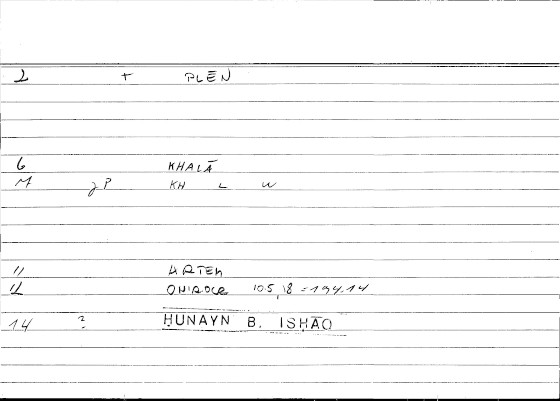 2 + PLĒN
6 KHALĀ
M P KH L W
11 ARTEM
12 ONIROCR 105,18 = 194.14
14 ? ḤUNAYN B. ISḤĀQ